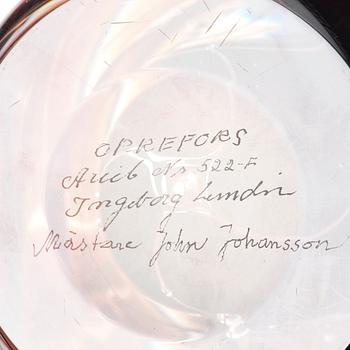 ORREFORS
Arieb Nr 522-F
Ingeborg Lundin
Mästare John Johansson